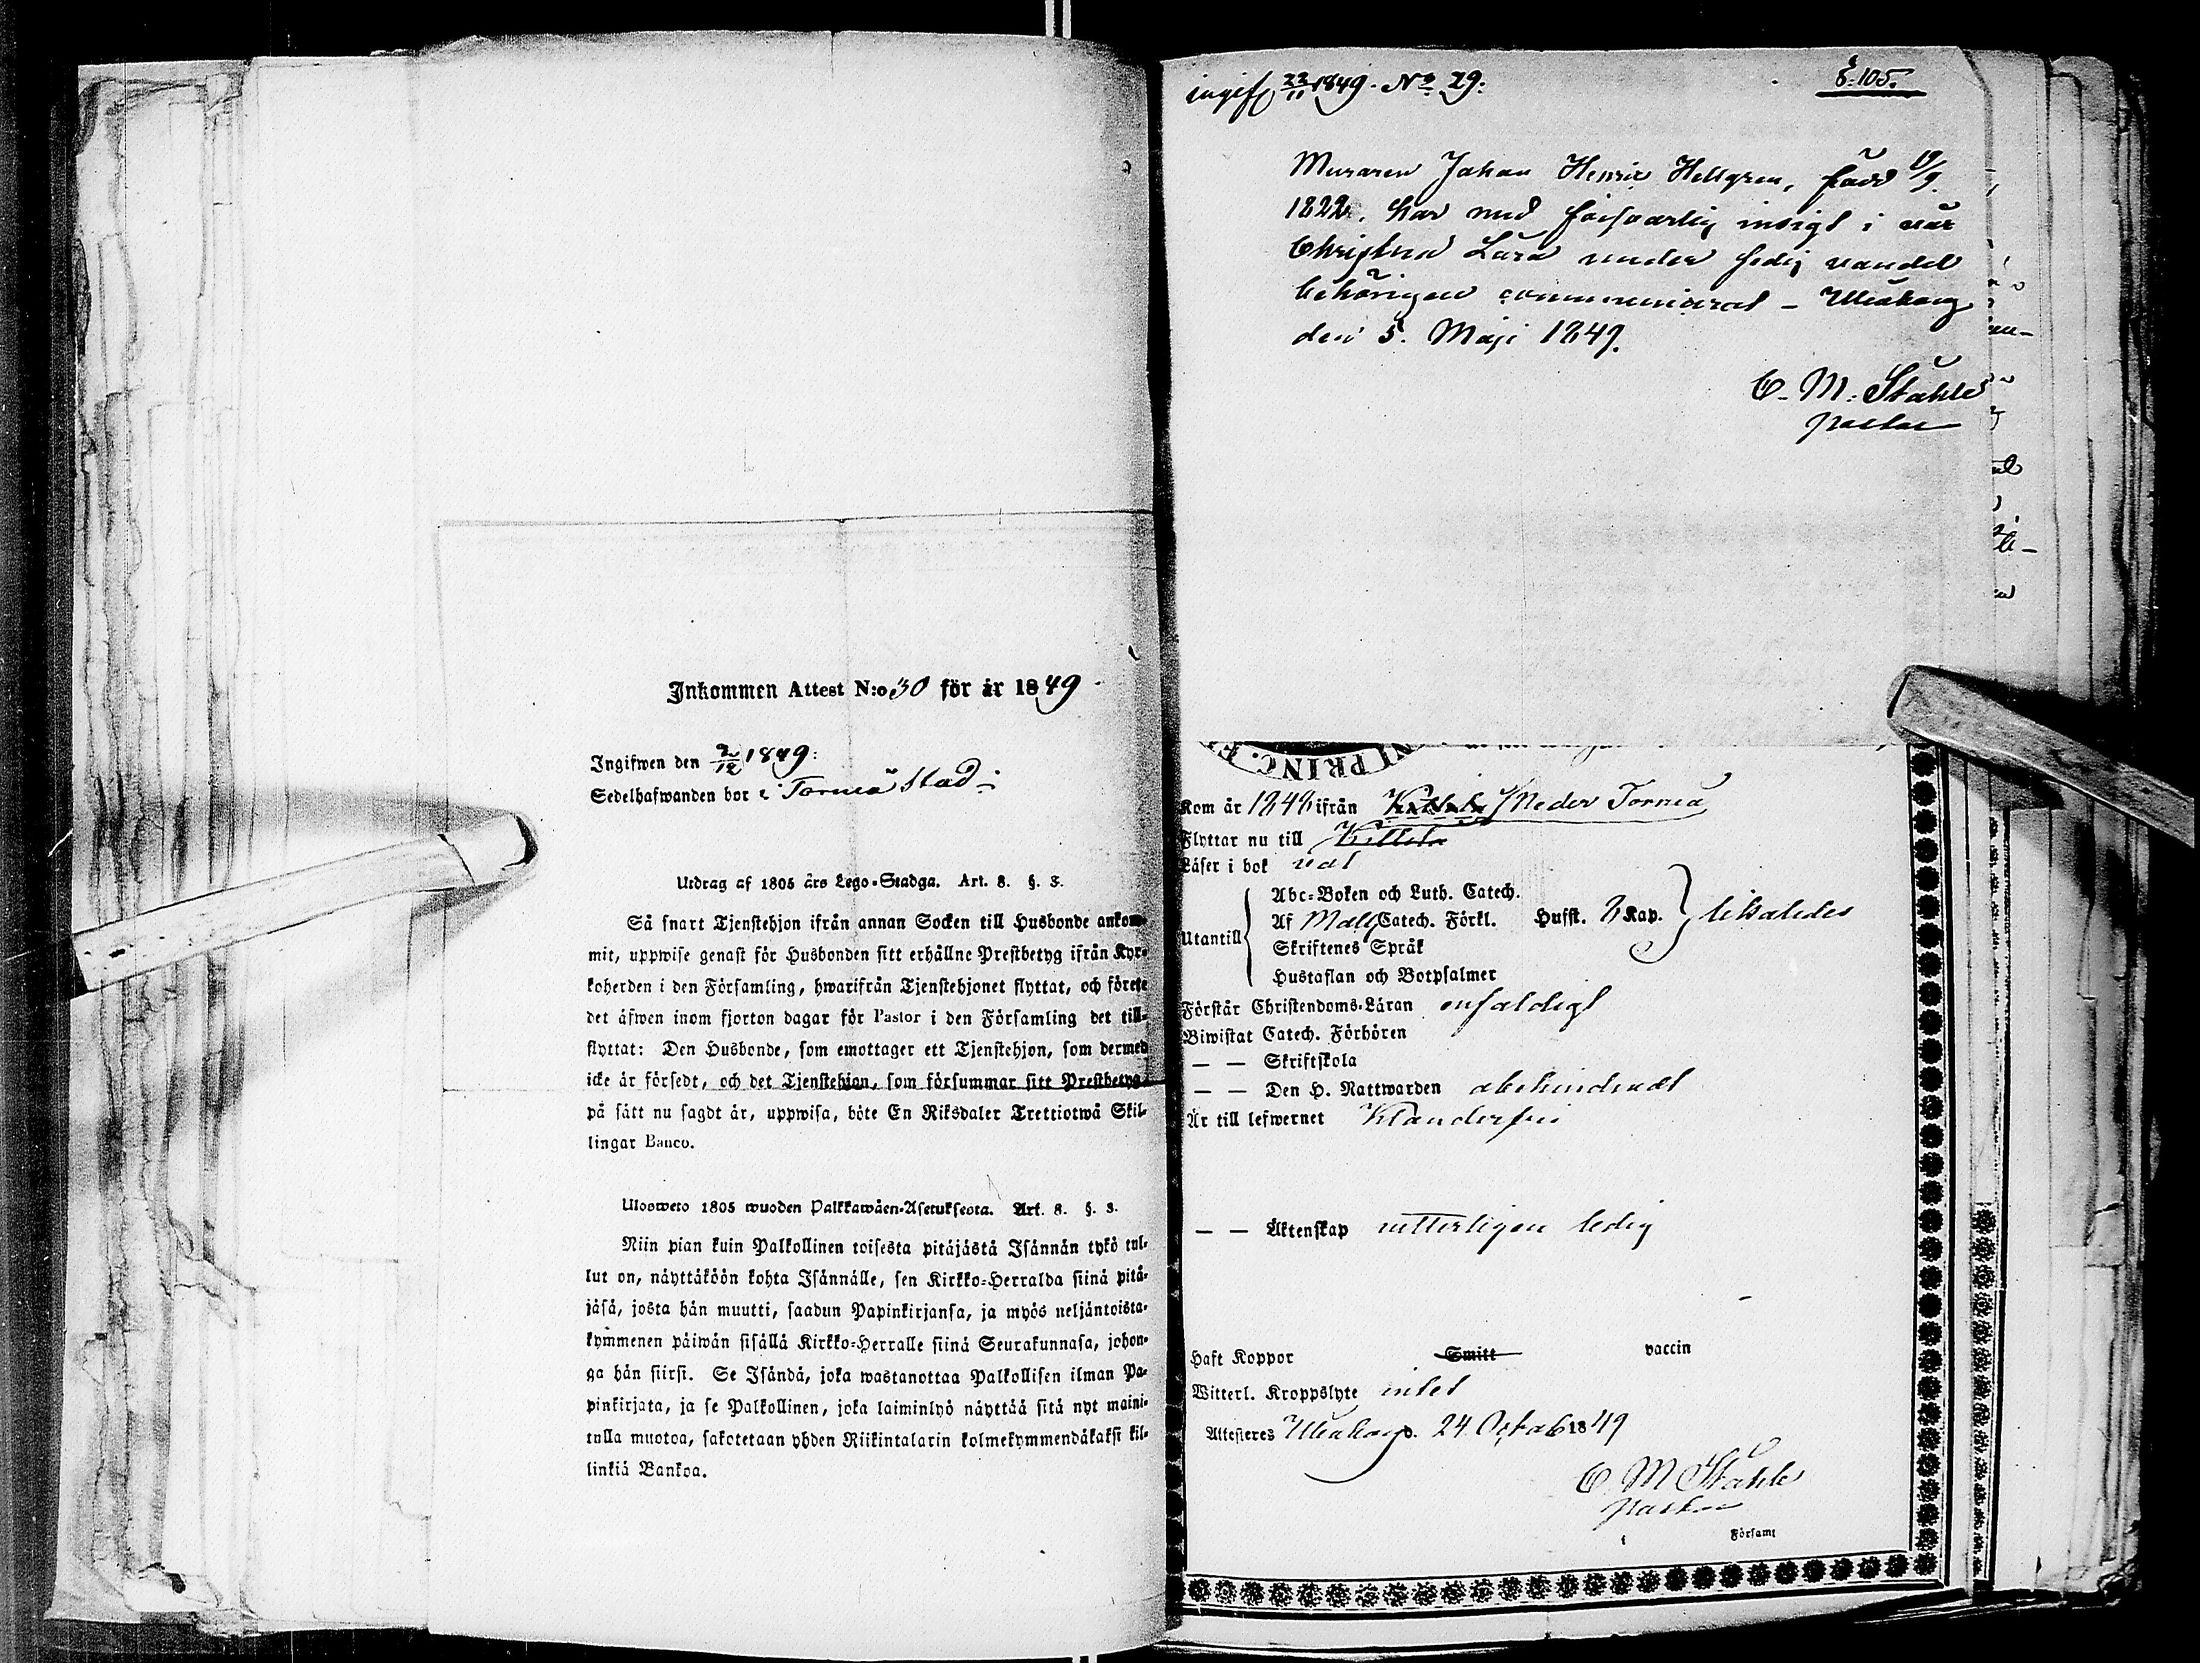 Inkommen Attest N:o 30 för år 1849
Ingifwen den 2/12 1849:
Sedelhafwanden bor i Torneå Stad
Utdrag af 1805 års Lego-Stadga. Art. 8. §. 3.
Så snart Tjenstehjon ifrån annan Socken till Husbonde ankom-
mit, uppwise genast för Husbonden sitt erhållne Prestbetyg ifrån Kyr-
koherden i den Församling, hwarifrån Tjenstehjonet flyttat, och förete
det äfwen inom fjorton dagar för Pastor i den Församling det till-
flyttat: Den Husbonde, som emottager ett Tjenstehjon, som dermed
icke är försedt, och det Tjenstehjon, som försummar sitt Prestbetyg,
på sätt nu sagdt är, uppwisa, böte En Riksdaler Trettiotwå Skil-
lingar Banco.
Ulosweto 1805 wuoden Palkkawäen-Asetuksesta. Art. 8. §. 3.
Niin pian kuin Palkollinen toisesta pitäjästä Isännän tykö tul-
lut on, näyttäköön kohta Isännälle, sen Kirkko-Herralda siinä pitä-
jäsä, josta hän muutti, saadun Papinkirjansa, ja myös neljäntoista-
kymmenen päiwän sisällä Kirkko-Herralle siinä Seurakunnasa, johon-
ga hän siirsi. Se Isändä, joka wastanottaa Palkollisen ilman Pa-
pinkirjata, ja se Palkollinen, joka laiminlyö näyttää sitä nyt maini-
tulla muotoa, sakotetaan yhden Riikintalarin kolmekymmendäkaksi kil-
linkiä Bankoa.
ingifv 22/11 1849. No 29:
S. 105.
Muraren Johan Henric Hellgren, född 19/9
1822, har med försvarlig insigt i vår
Christna Lära under sedig vandel
behörigen communicerat – Uleåborg
den 5. Maji 1849.
C. M. Ståhle
pastor
NI PRINC. F
Kom år 1848 ifrån Kittilä / Neder Torneå
Flyttar nu till Kittilä
Läser i bok väl
Utantill
Abc-Boken och Luth. Catech.
Af Mall Catech. Förkl. Husst. 2 Kap.
Skriftenes Språk
Hustaflan och Botpsalmer
Förstår Christendoms-Läran enfaldigt
Biwistat Catech. Förhören
— — Skriftskola
— — Den H. Nattwarden obehindradt
Är till lefwernet Klanderfri
— — Äktenskap vitterligen ledig
Haft Koppor Smitt vaccin
Witterl. Kroppslyte intet
Attesteres Uleåborg d. 24 Octob 1849
C M Ståhle
pastor
Församl